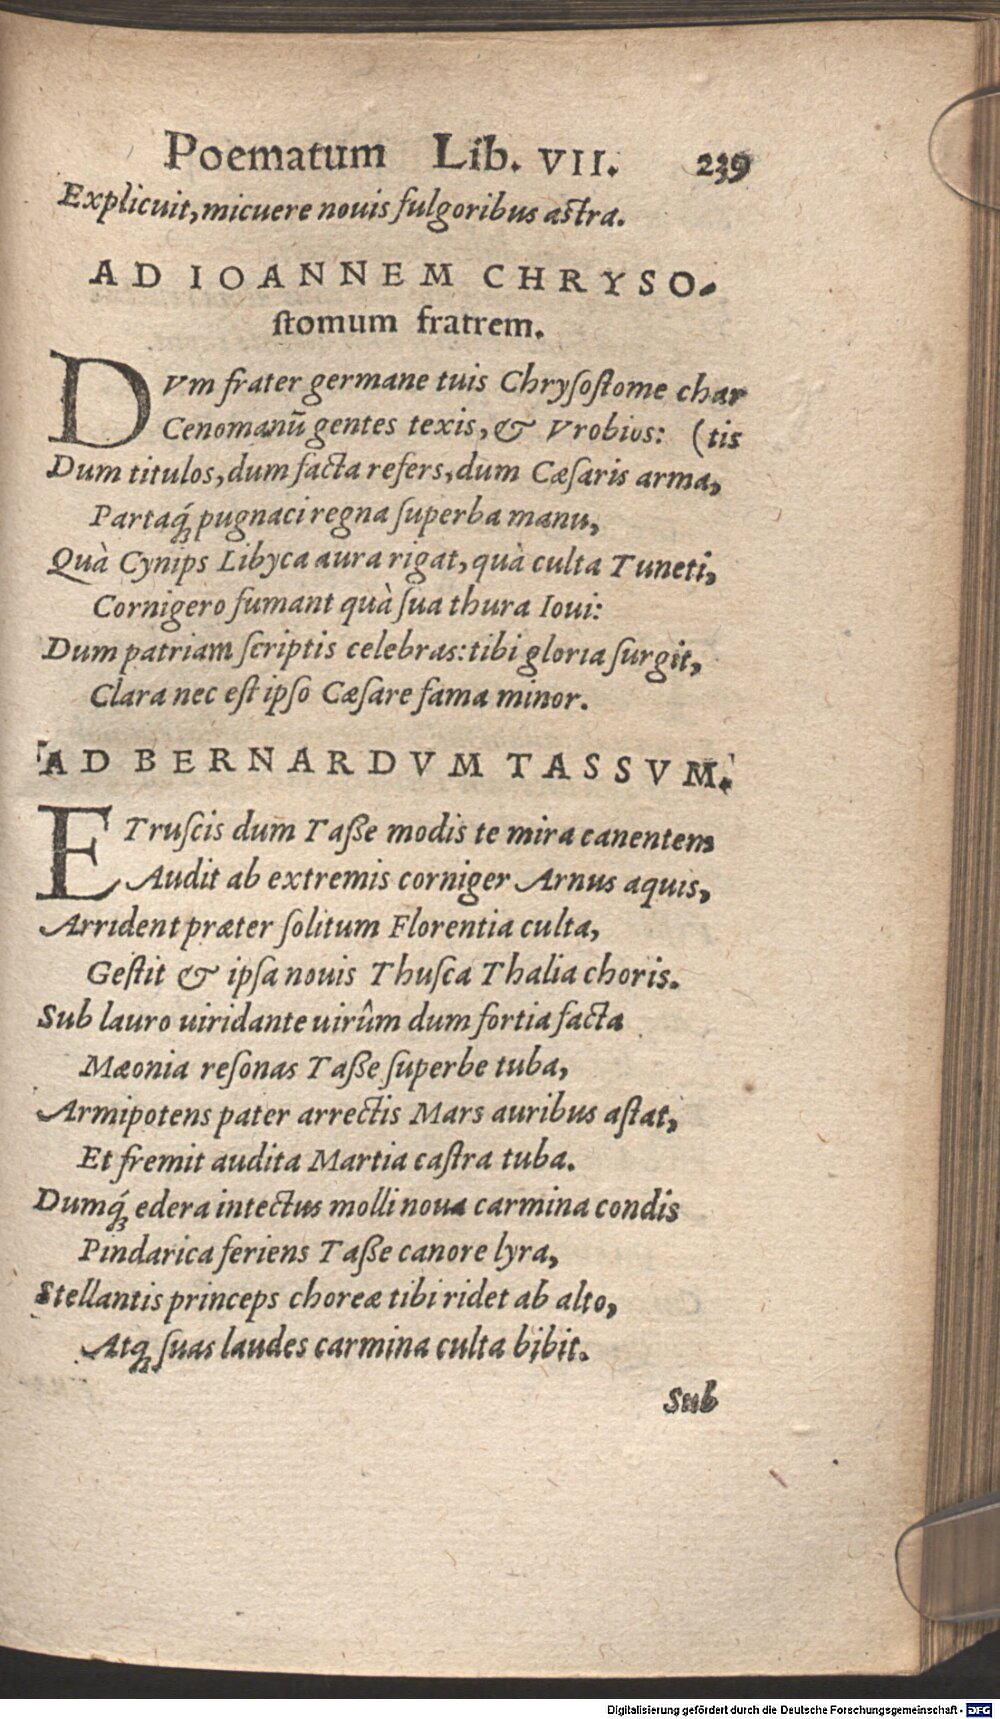 Poematum Lib. VII. 239
Explicuit, micuere nouis fulgoribus astra.
AD IOANNEM CHRYSO-
stomum fratrem.
DVm frater germane tuis Chrysostome char
Cenomanũ gentes texis, & Vrobios: (tis
Dum titulos, dum facta refers, dum Cæsaris arma,
Partaq́; pugnaci regna superba manu,
Quà Cynips Libyca aura rigat, quà culta Tuneti,
Cornigero fumant quà sua thura Ioui:
Dum patriam scriptis celebras: tibi gloria surgit,
Clara nec est ipso Cæsare fama minor.
AD BERNARDVM TASSVM.
ETruscis dum Taße modis te mira canentem
Audit ab extremis corniger Arnus aquis,
Arrident præter solitum Florentia culta,
Gestit & ipsa nouis Thusca Thalia choris.
Sub lauro uiridante uirûm dum fortia facta
Mæonia resonas Taße superbe tuba,
Armipotens pater arrectis Mars auribus astat,
Et fremit audita Martia castra tuba.
Dumq́; edera intectus molli noua carmina condis
Pindarica feriens Taße canore lyra,
Stellantis princeps choreæ tibi ridet ab alto,
Atq; suas laudes carmina culta bibit.
Sub
Digitalisierung gefördert durch die Deutsche Forschungsgemeinschaft - DFG